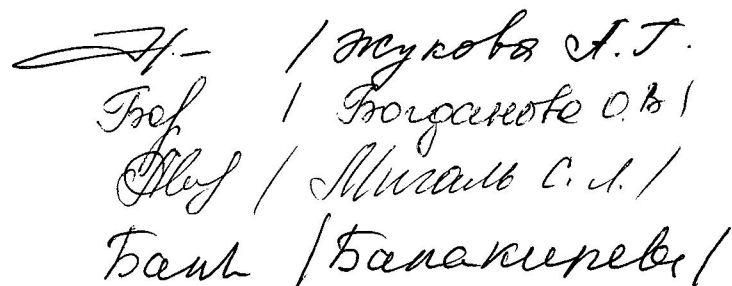 / Жукова А.Г.
Бог / Богданова О.В /
/ Мигаль С.Л. /
Бала / Балакирева /